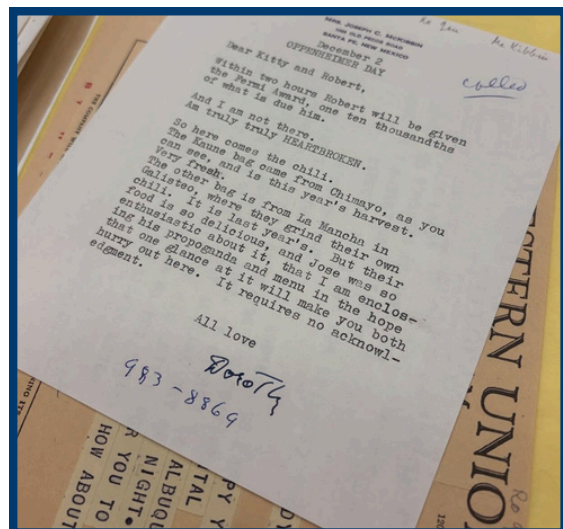 Re Gen
Mc Kibbin
called
MRS. JOSEPH C. MCKIBBIN
OLD PECOS ROAD
SANTA FE, NEW MEXICO
December 2
OPPENHEIMER DAY
Dear Kitty and Robert,
Within two hours Robert will be given
the Fermi Award, one ten thousandths
of what is due him.
And I am not there.
Am truly truly HEARTBROKEN.
So here comes the chili.
The Kaune bag came from Chimayo, as you
can see, and is this year's harvest.
Very fresh.
The other bag is from La Mancha in
Galisteo, where they grind their own
chili. It is last year's. But their
food is so delicious, and Jose was so
enthusiastic about it, that I am enclos-
ing his propoganda and menu in the hope
that one glance at it will make you both
hurry out here. It requires no acknowl-
edgment.
All love
Dorothy
983-8869
STERN UNIO
HOW ABOUT
R YOU TO
NIGHT.
ALBUQ
TAL
PY Y